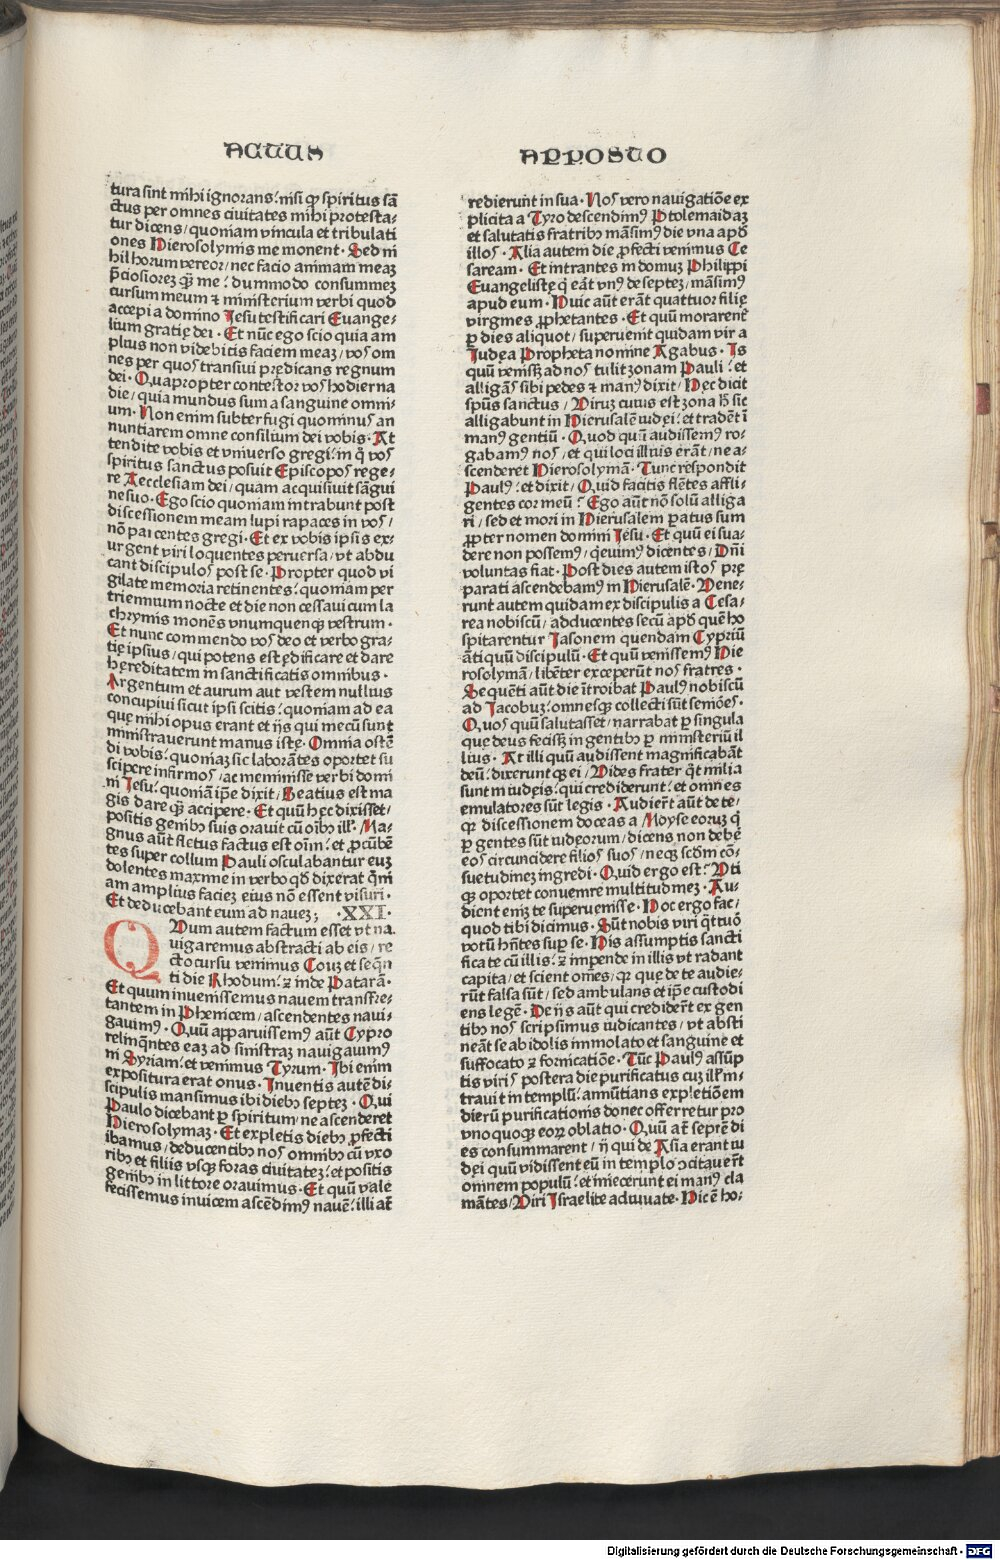 ACTUS
APPOSTO
tura sint mihi ignorans: nisi qꝫ spiritus sā
ctus per omnes ciuitates mihi protesta-
tur dicens/ quoniam vincula et tribulati
ones Hierosolymis me monent. Sed ni
hil horum vereor/ nec facio animam meaꝫ
p̄ciosiorez q̄ꝫ me: dummodo consummeꝫ
cursum meum ⁊ ministerium verbi quod
accepi a domino Jesu testificari Euange-
lium gratię dei. Et nūc ego scio quia am
plius non videbitis faciem meaꝫ/ vos om
nes per quos transiui prędicans regnum
dei. Quapropter contestor vos hodierna
die/ quia mundus sum a sanguine omni-
um. Non enim subterfugi quominus an
nuntiarem omne consilium dei vobis. At
tendite vobis et vniuerso gregi: in q̄ vos
spiritus sanctus posuit Episcopos rege-
re Aecclesiam dei/ quam acquisiuit sāgui
ne suo. Ego scio quoniam intrabunt post
discessionem meam lupi rapaces in vos/
nō parcentes gregi. Et ex vobis ipsis ex-
urgent viri loquentes peruersa/ vt abdu
cant discipulos post se. Propter quod vi
gilate memoria retinentes: quoniam per
triennium nocte et die non cessaui cum la
chrymis monēs vnumquenqꝫ vestrum.
Et nunc commendo vos deo et verbo gra-
tię ipsius/ qui potens est ędificare et dare
hęreditatem in sanctificatis omnibus.
Argentum et aurum aut vestem nullius
concupiui sicut ipsi scitis: quoniam ad ea
quę mihi opus erant et ijs qui mecū sunt
ministrauerunt manus istę. Omnia ostē
di vobis: quoniaꝫ sic laborātes oportet su
scipere infirmos/ ac meminisse verbi domi
ni Jesu: quoniā ip̄e dixit/ Beatius est ma
gis dare q̄ꝫ accipere. Et quū hęc dixisset/
positis genibꝫ suis orauit cū oībꝫ ill'. Ma-
gnus aūt fletus factus est oīm: et ꝓcūbē
tes super collum Pauli osculabantur euꝫ
dolentes maxime in verbo qd̄ dixerat q̄m
am amplius facieꝫ eius nō essent visuri.
Et deducebant eum ad naueꝫ; .XXI.
QVum autem factum esset vt na.
uigaremus abstracti ab eis/ re
cto cursu venimus Couꝫ et seq̄n
ti die Rhodum: ⁊ inde Patarā.
Et quum inuenissemus nauem transfre-
tantem in Phenicem/ ascendentes naui-
gauimꝰ. Quū apparuissemꝰ aūt Cypro
relinq̄ntes eaꝫ ad sinistraꝫ nauigauimꝰ
ni Syriam: et venimus Tyrum. Ibi enim
expositura erat onus. Inuentis autē di-
scipulis mansimus ibi diebꝫ septeꝫ. Qui
Paulo dicebant ꝑ spiritum/ ne ascenderet
Hierosolymaꝫ. Et expletis diebꝫ ꝓfecti
ibamus/ deducentibꝫ nos omnibꝫ cū vxo
ribꝫ et filiis vsqꝫ foras ciuitateꝫ: et positis
genibꝫ in littore orauimus. Et quū vale
fecissemus inuicem ascēdimꝰ nauē: illi at̄
redierunt in sua. Nos vero nauigatiōe ex
plicita a Tyro descendimꝰ Ptolemaidaꝫ
et salutatis fratribꝫ māsimꝰ die vna apd̄
illos. Alia autem die ꝓfecti venimus Ce
saream. Et intrantes in domuꝫ Philippi
Euangelistę q̄ eāt vnꝰ de septeꝫ/ māsimꝰ
apud eum. Huic aūt erāt quattuor filię
virgines ꝓphetantes. Et quū morarenť
ꝑ dies aliquot/ superuenit quidam vir a
Iudęa Propheta nomine Agabus. Is
quū venissꝫ ad nos tulit zonam Pauli: et
alligās sibi pedes ⁊ manꝰ dixit/ Hec dicit
spūs sanctus/ Viruꝫ cuius est zona h̄ sic
alligabunt in Hierusalē iudęi: et tradēt ī
manꝰ gentiū. Quod quū audissemꝰ ro-
gabamꝰ nos/ et qui loci illius erāt/ ne a-
scenderet Hierosolymā. Tunc respondit
Paulꝰ: et dixit/ Quid facitis flētes affli-
gentes cor meū? Ego aūt nō solū alliga
ri/ sed et mori in Hierusalem paratus sum
ꝓpter nomen domini Jesu. Et quū ei sua-
dere non possemꝰ/ q̄euimꝰ dicentes/ Dn̄i
voluntas fiat. Post dies autem istos prę
parati ascendebamꝰ in Hierusalē. Vene-
runt autem quidam ex discipulis a Cesa-
rea nobiscū/ adducentes secū apd̄ quē ho
spitarentur Iasonem quendam Cypriū
ātiquū discipulū. Et quū venissemꝰ Hie
rosolymā/ libēter exceperūt nos fratres.
Sequēti aūt die ītroibat Paulꝰ nobiscū
ad Jacobuꝫ: omnesqꝫ collecti sūt seniōes.
Quos quū salutasset/ narrabat ꝑ singula
que deus fecissꝫ in gentibꝫ ꝑ ministeriū il
lius. At illi quū audissent magnificabāt
deū: dixeruntqꝫ ei/ Vides frater q̄t milia
sunt in iudęis: qui crediderunt: et omnes
emulatores sūt legis. Audierūt aūt de te/
qꝫ discessionem doceas a Moyse eoruꝫ q̄
ꝑ gentes sūt iudęorum/ dicens non debē
eos circuncidere filios suos/ neqꝫ scd̄m cō-
suetudineꝫ ingredi. Quid ergo est? Vti
qꝫ oportet conuenire multitudineꝫ. Au-
dient enīꝫ te superuenisse. Hoc ergo fac/
quod tibi dicimus. Sūt nobis viri q̄ttuor
votū hn̄tes suꝑ se. His assumptis sancti
fica te cū illis: ⁊ impende in illis vt radant
capita/ et scient om̄es/ qꝫ que de te audie-
rūt falsa sūt/ sed ambulans et ip̄e custodi
ens legē. De ijs aūt qui crediderūt ex gen
tibꝫ nos scripsimus iudicantes/ vt absti
neāt se ab idolis immolato et sanguine et
suffocato ⁊ fornicatiōe. Tūc Paulꝰ assūp
tis viris postera die purificatus cuꝫ ill' in-
trauit in templū: annūtians expletiōem
dierū purificationis donec offerretur pro
vnoquoqꝫ eoꝝ oblatio. Quū at̄ septē di
es consummarent/ ij qui de Asia erant iu
dęi quū vidissent eū in templo ↄcitauerūt
omnem populū: et iniecerunt ei manꝰ cla
mātes/ Viri Israelite adiuuate. Hic ē ho-
Digitalisierung gefördert durch die Deutsche Forschungsgemeinschaft - DFG